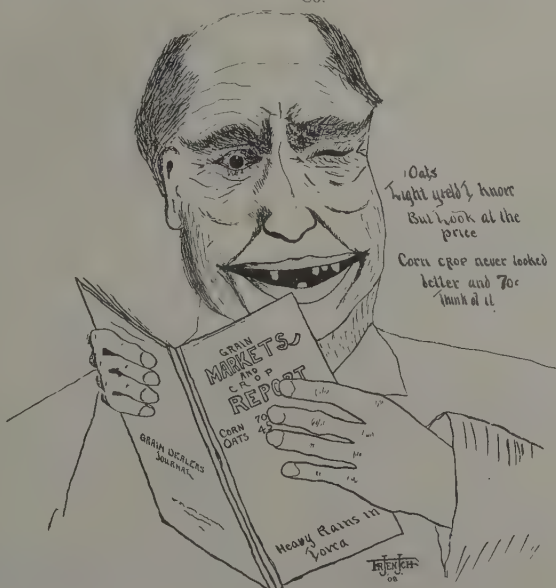 Co.
Oats
Light yield I know
But Look at the
price
Corn crop never looked
better and 70c
Think of it
GRAIN
MARKETS
AND
CROP
REPORT
CORN 70
OATS 45
GRAIN DEALERS
JOURNAL
Heavy Rains in
Iowa
08